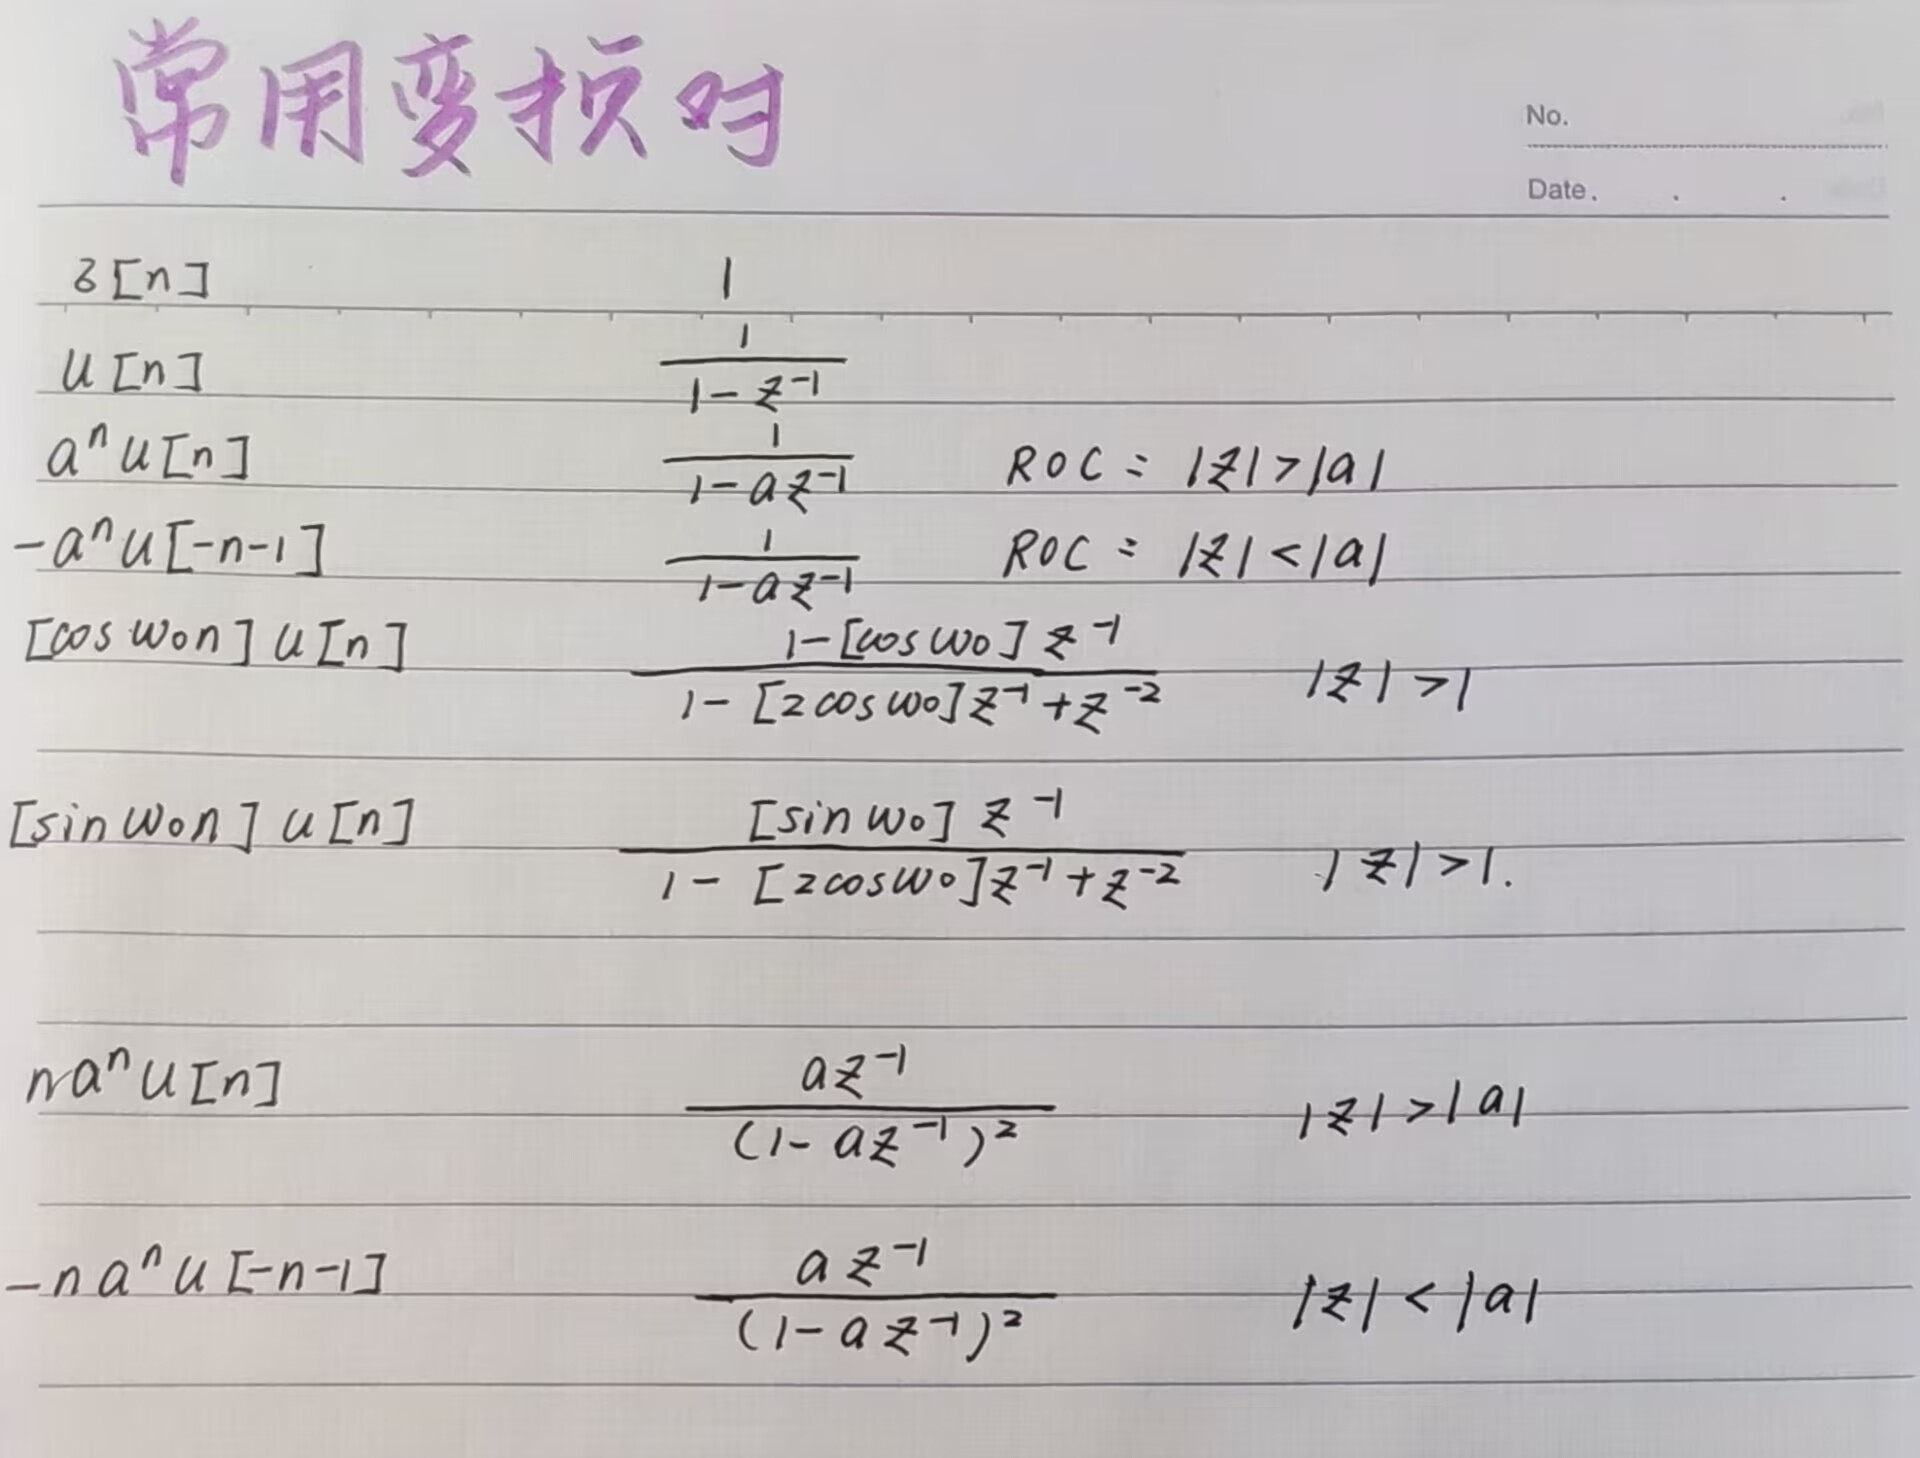 常用变换对
No.
Date.
δ[n] 1
u[n] 1/(1-z⁻¹)
aⁿu[n] 1/(1-az⁻¹) ROC: |z|>|a|
-aⁿu[-n-1] 1/(1-az⁻¹) ROC: |z|<|a|
[cosω₀n]u[n] (1-[cosω₀]z⁻¹)/(1-[2cosω₀]z⁻¹+z⁻²) |z|>1
[sinω₀n]u[n] ([sinω₀]z⁻¹)/(1-[2cosω₀]z⁻¹+z⁻²) |z|>1.
naⁿu[n] az⁻¹/(1-az⁻¹)² |z|>|a|
-naⁿu[-n-1] az⁻¹/(1-az⁻¹)² |z|<|a|